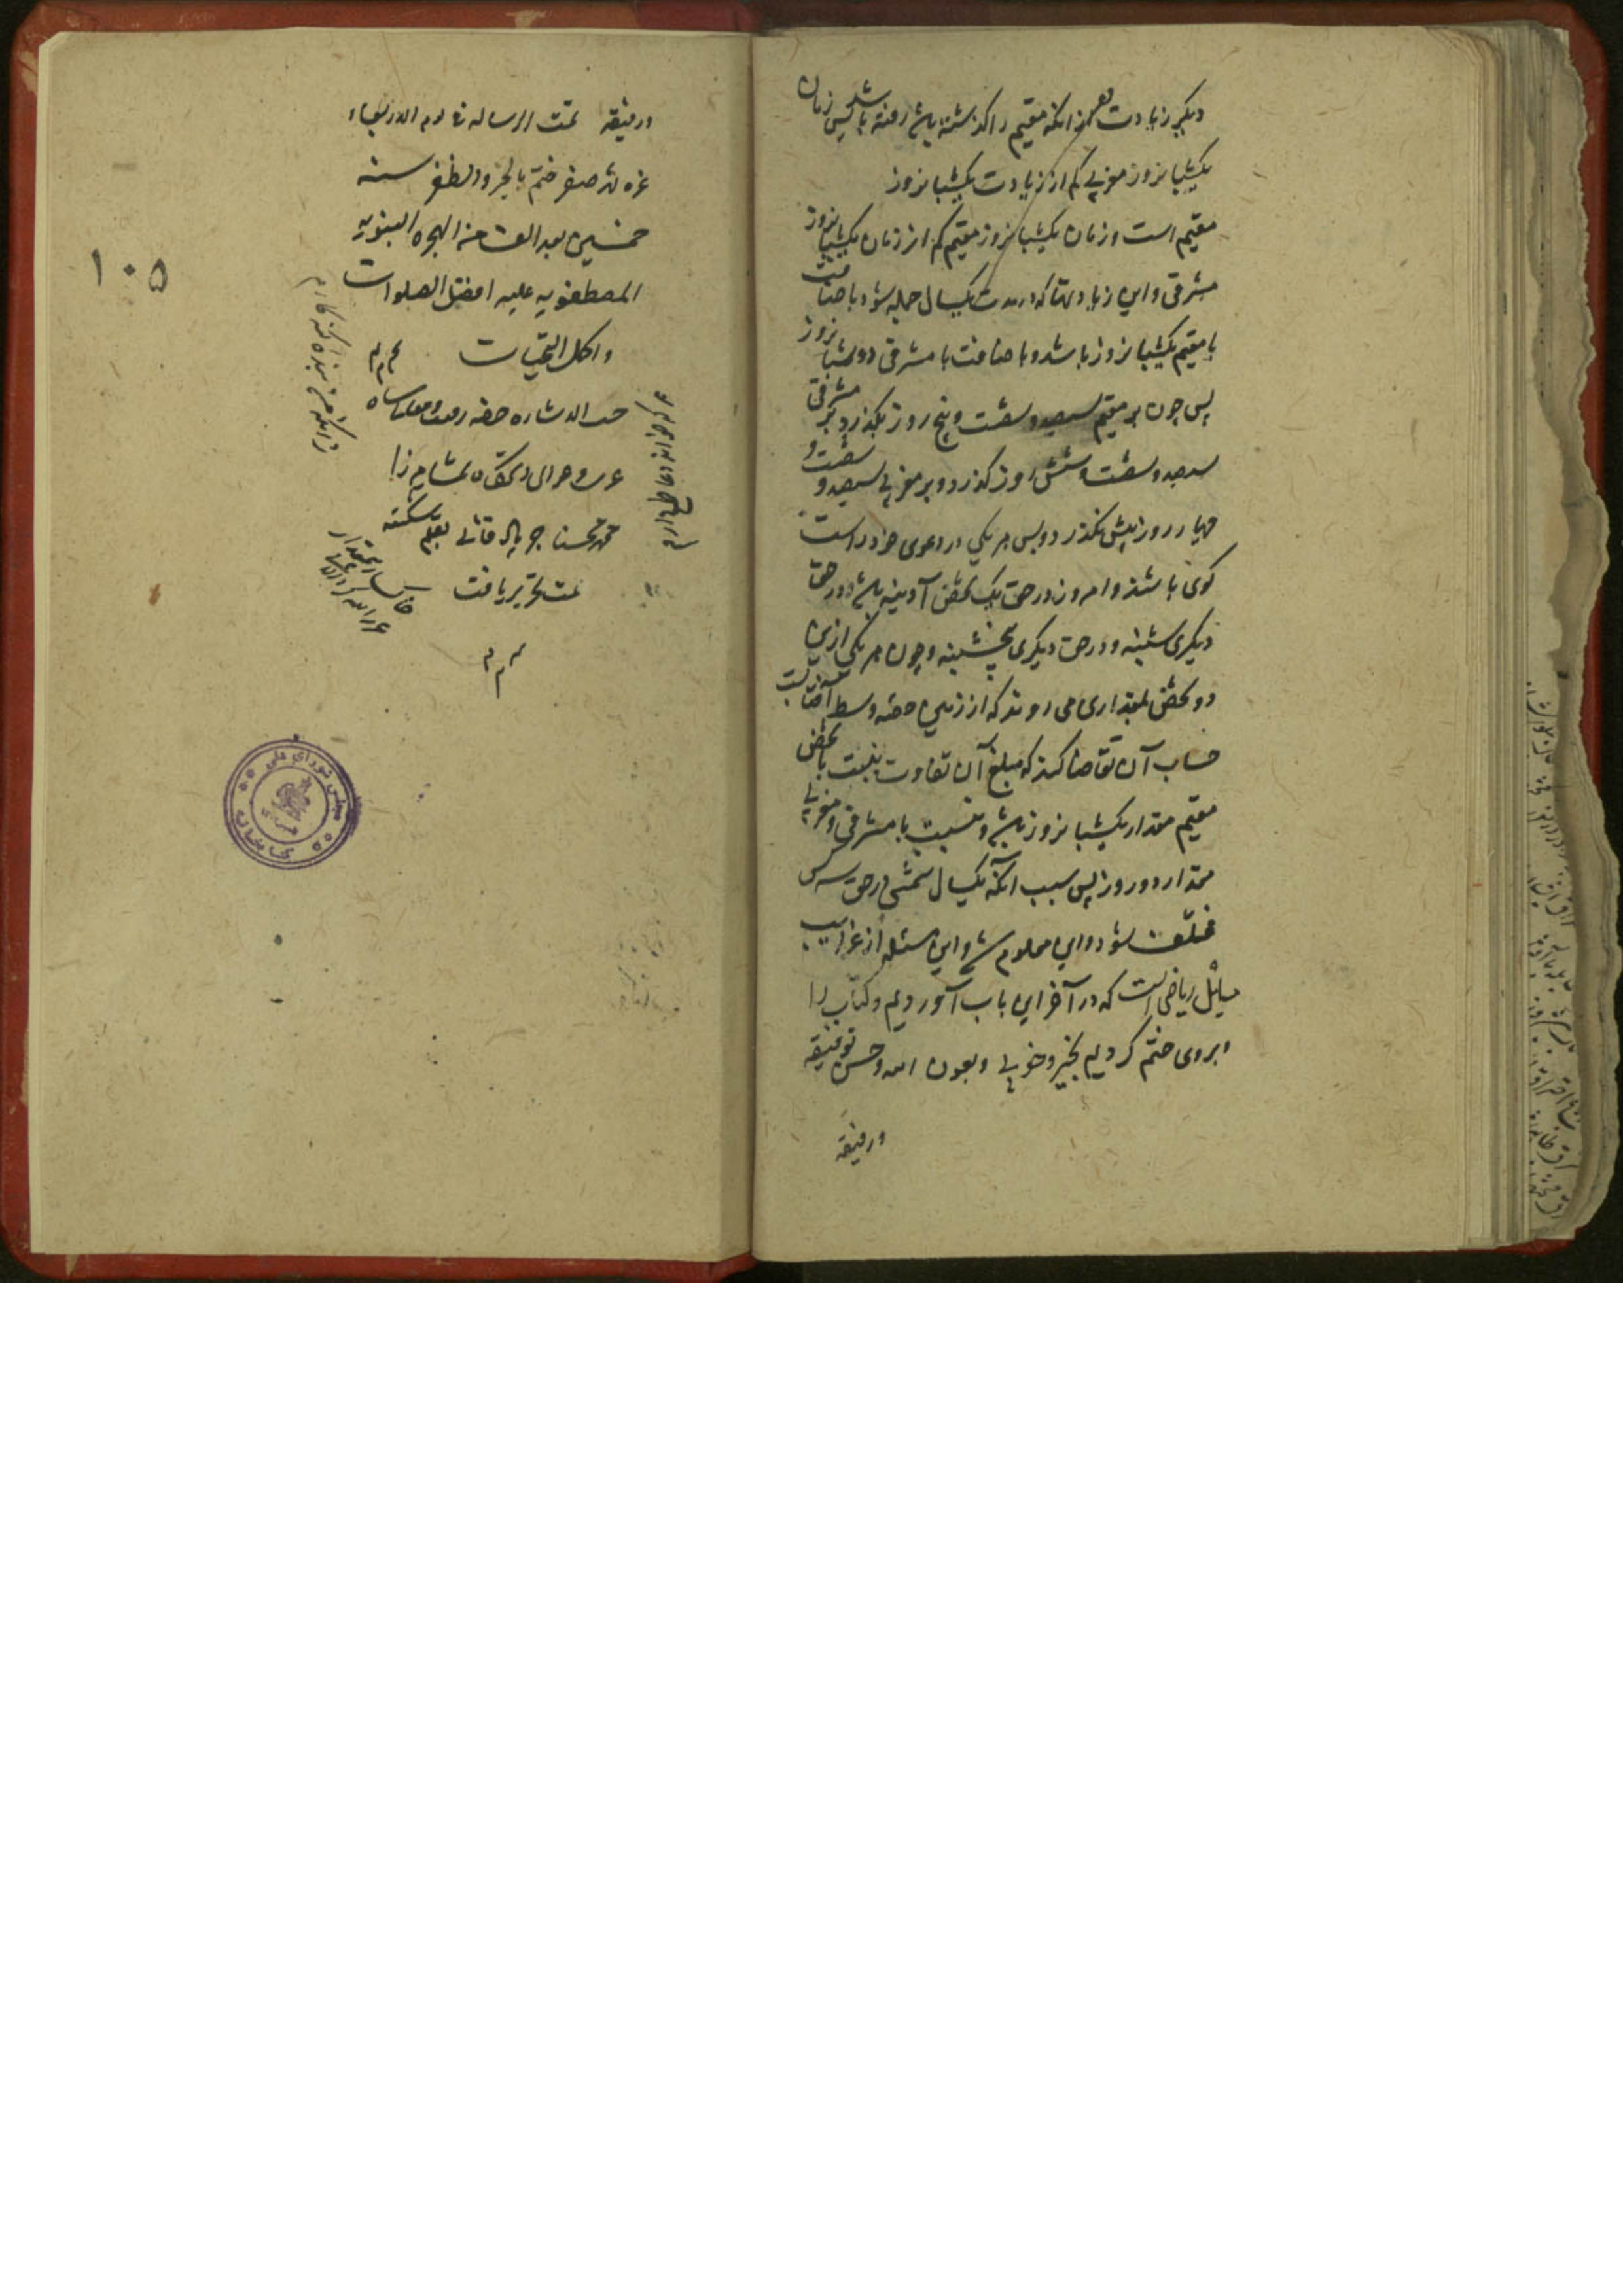 دیگر زیادت بعد از آنکه مقیم را گذشته باشد رفته باشد پس زمان
یکشبانروز مغربی کم از زیادت یکشبانروز
مقیم است و زمان یکشبانروز مقیم کم از زمان یکشبانروز
مشرقی و این زیادتها که در مدت یکسال جمله شود باضافت
با مقیم یکشبانروز باشد و باضافت با مشرقی دو شبانروز
پس چون بر مقیم سیصد و شصت و پنج روز بگذرد بر مشرقی
سیصد و شصت و شش روز گذرد و بر مغربی سیصد و شصت و
چهار روز بیش نگذرد و پس هر یکی در دعوی خود راست
گوی باشند و امروز در حق یک شخص آدینه باشد و در حق
دیگری شنبه و در حق دیگری پنجشنبه و چون هر یکی ازین
دو شخص بمقداری می روند که از زمین حصه وسط آفتابست
حساب آن تقاضا کند که مبلغ آن تفاوت بنسبت با شخص
مقیم مقدار یکشبانروز باشد و بنسبت با مشرقی و مغربی
مقدار دو روز پس سبب آنکه یکسال شمسی در حق سه کس
مختلف شود و این معلوم شد و این مسئله از غرایب
مسایل ریاضی است که در آخر این باب آوردیم و کتاب را
بروی ختم کردیم بخیر و خوبی و بعون الله و حسن توفیقه
ورفیقه
ورفیقه تمت الرساله فی یوم الاربعاء
غره شهر صفر ختم بالخیر والظفر سنه
خمسین بعد الف من الهجره النبویه
المصطفویه علیه افضل الصلوات
واکمل التحیات
حسب الاشاره
محمد محسنا جربادقانی بقلم شکسته
سمت تحریر یافت
۱۰۵
هر که خواند دعا طمع دارم
زانکه من بنده گنه کارم
مجلس شورای ملی
کتابخانه